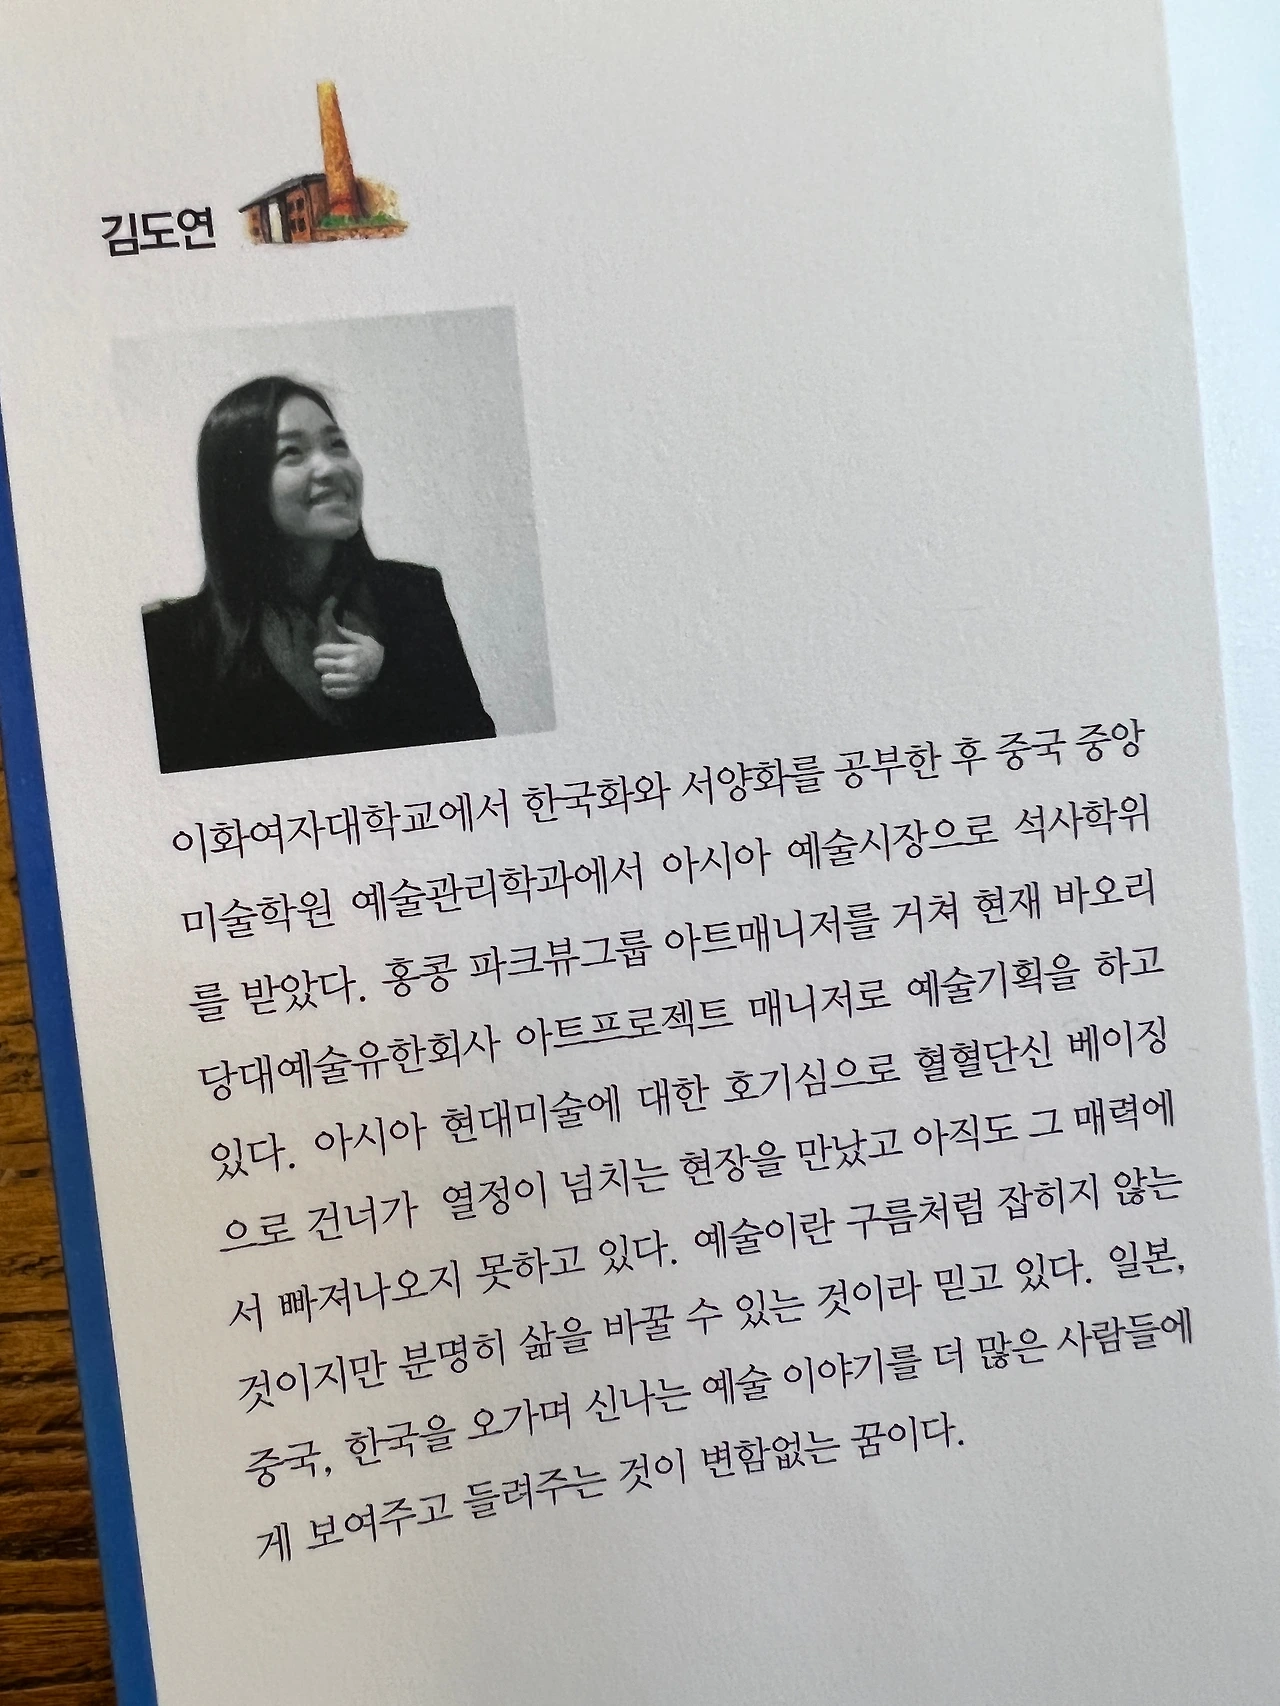 김도연
이화여자대학교에서 한국화와 서양화를 공부한 후 중국 중앙
미술학원 예술관리학과에서 아시아 예술시장으로 석사학위
를 받았다. 홍콩 파크뷰그룹 아트매니저를 거쳐 현재 바오리
당대예술유한회사 아트프로젝트 매니저로 예술기획을 하고
있다. 아시아 현대미술에 대한 호기심으로 혈혈단신 베이징
으로 건너가 열정이 넘치는 현장을 만났고 아직도 그 매력에
서 빠져나오지 못하고 있다. 예술이란 구름처럼 잡히지 않는
것이지만 분명히 삶을 바꿀 수 있는 것이라 믿고 있다. 일본,
중국, 한국을 오가며 신나는 예술 이야기를 더 많은 사람들에
게 보여주고 들려주는 것이 변함없는 꿈이다.